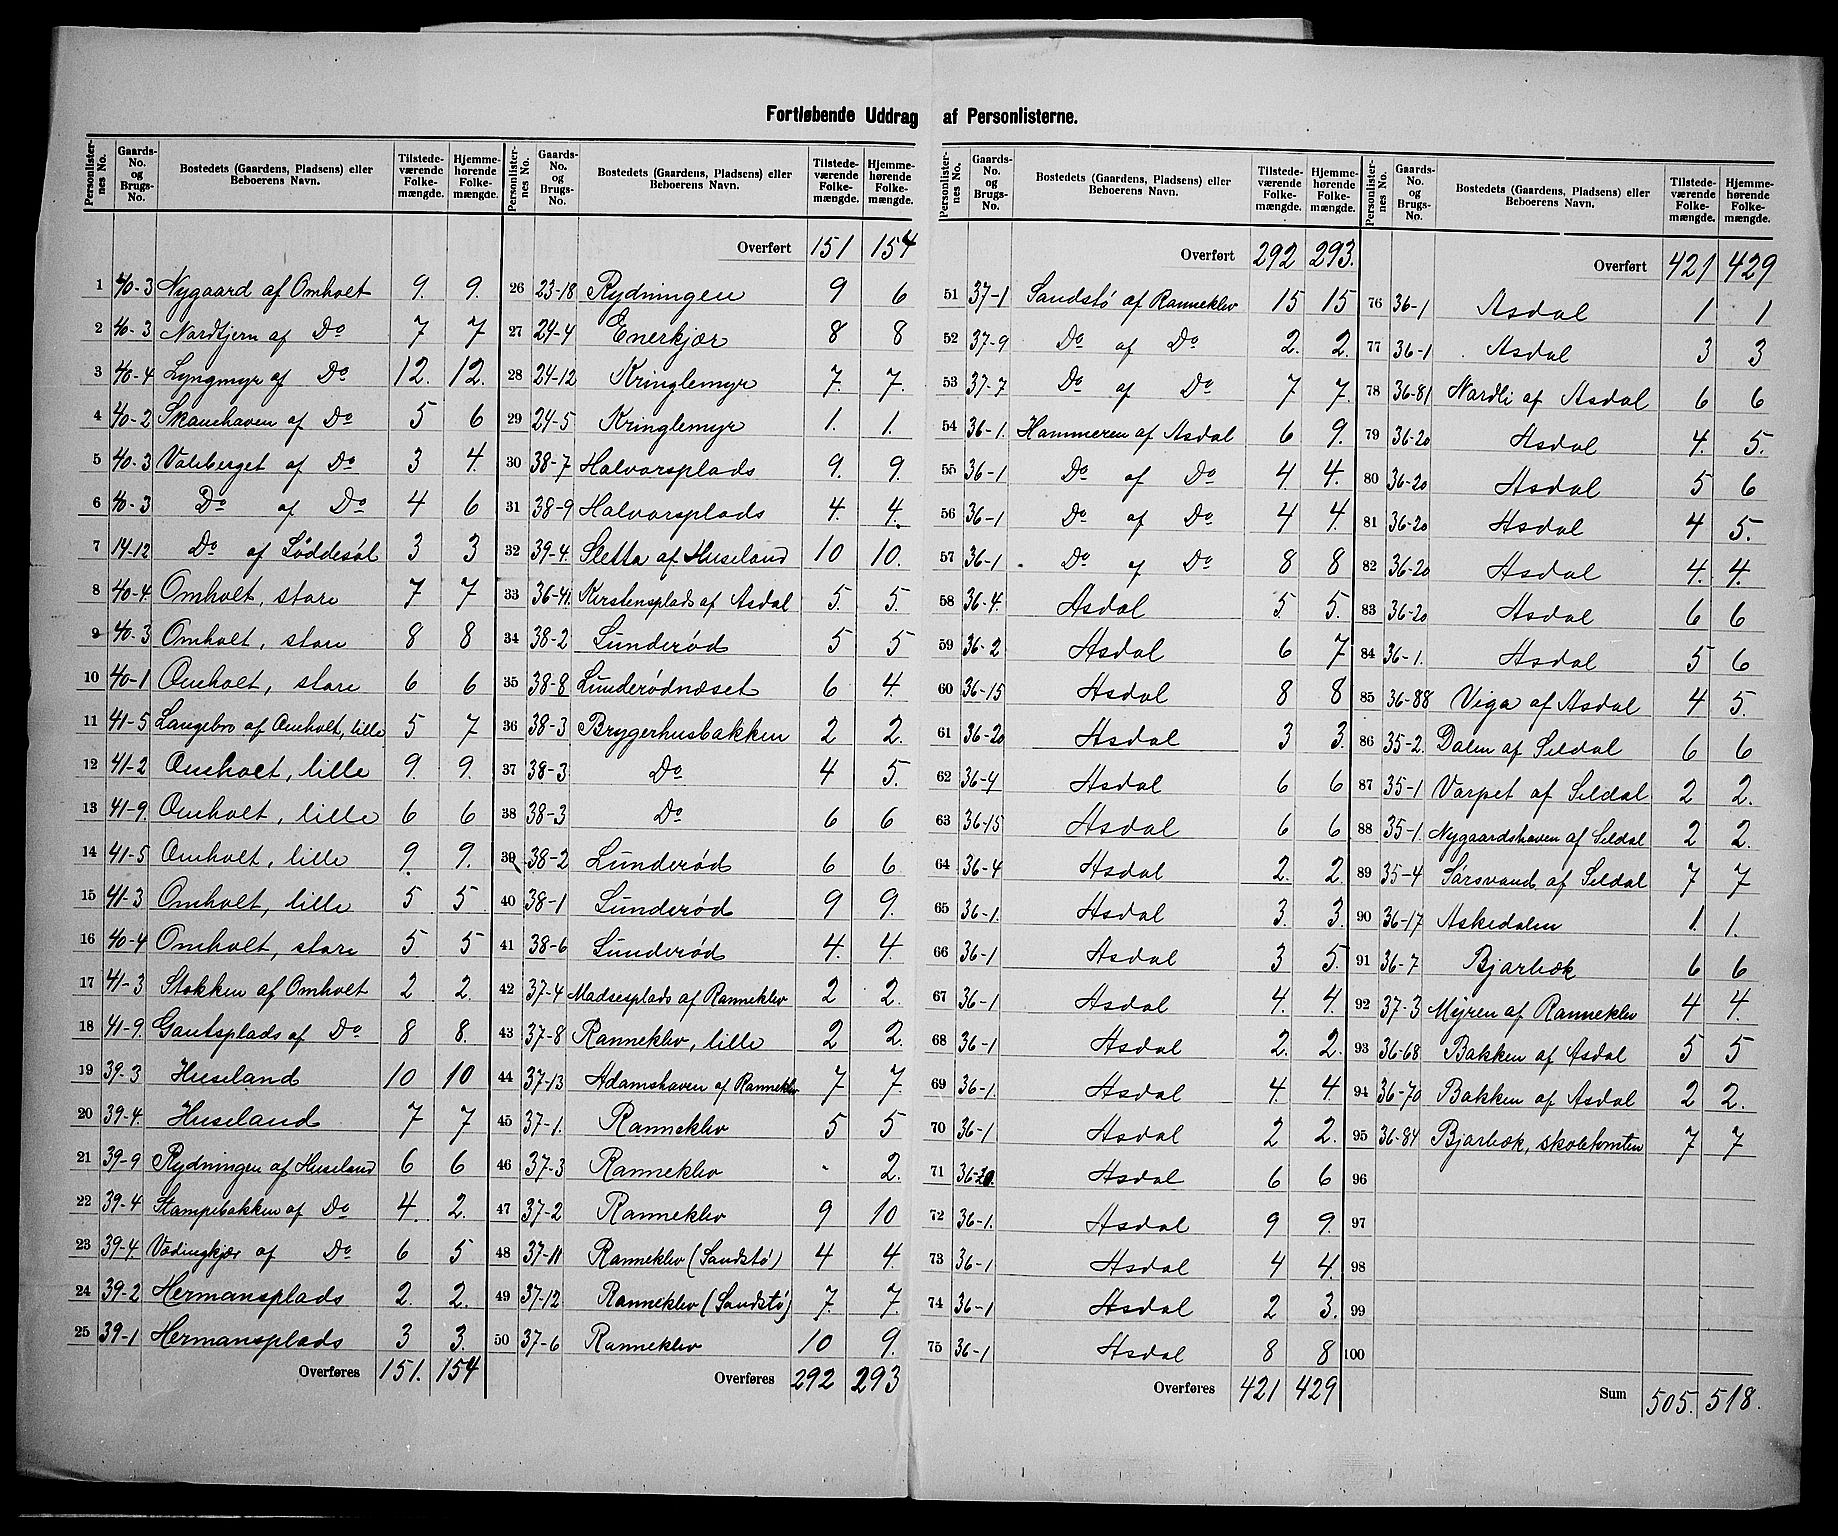 Fortløbende Uddrag af Personlisterne.
Personlister-nes No. | Gaards-No. og Brugs-No. | Bostedets (Gaardens, Pladsens) eller Beboerens Navn. | Tilstede-værende Folke-mængde. | Hjemme-hørende Folke-mængde.
1 40-3 Nygaard af Omholt 9. 9.
2 40-3 Nordtjern af Do 7 7
3 40-4 Lyngmyr af Do 12. 12.
4 40-2 Skauehaven af Do 5 6
5 40-3 Valeberget af Do 3 4.
6 40-3 Do af Do 4 6
7 14-12 Do af Løddesøl 3 3
8 40-4. Omholt, store 7 7
9 40-3 Omholt, store 8 8
10 40-1 Omholt, store 6 6
11 41-5 Langebro af Omholt, lille 5 7
12 41-2 Omholt, lille 9. 9.
13 41-9. Omholt, lille 6 6
14 41-5 Omholt, lille 9. 9.
15 41-3 Omholt, lille 5 5
16 40-4 Omholt, store 5 5
17 41-3 Stokken af Omholt 2 2
18 41-9. Gautsplads af Do 8 8.
19 39-3 Huseland 10 10
20 39-4. Huseland 7 7
21 39-9 Rydningen af Huseland 6 6
22 39-4 Stampebakken af Do 4. 2.
23 39-4. Vadingkjær af Do 6 5
24 39-2 Hermansplads 2. 2.
25 39-1 Hermansplads 3 3.
Overføres 151. 154
Personlister-nes No. | Gaards-No. og Brugs-No. | Bostedets (Gaardens, Pladsens) eller Beboerens Navn. | Tilstede-værende Folke-mængde. | Hjemme-hørende Folke-mængde.
Overført 151 154
26 23-18 Rydningen 9 6
27 24-4 Enerkjær 8 8
28 24-12 Kringlemyr 7. 7.
29 24-5 Kringlemyr 1. 1.
30 38-7 Halvorsplads 9. 9.
31 38-9 Halvorsplads 4. 4.
32 39-4. Sletta af Huseland 10 10.
33 36-41. Kerstensplads af Asdal 5. 5.
34 38-2 Lunderød 5 5
35 38-8 Lunderødnæset 6 4.
36 38-3 Bryggerhusbakken 2 2.
37 38-3 Do 4 5.
38 38-3 Do 6 6
39 38-2 Lunderød 6 6.
40 38-1 Lunderød 9 9.
41 38-6 Lunderød 4. 4.
42 37-4 Madsesplads af Ranneklev 2 2.
43 37-8 Ranneklev, lille 2 2.
44 37-13 Adamshaven af Ranneklev 7 7.
45 37-1. Ranneklev 5 5
46 37-3 Ranneklev - 2.
47 37-2 Ranneklev 9 10
48 37-11 Ranneklev (Sandstø) 4 4.
49 37-12 Ranneklev (Sandstø) 7. 7.
50 37-6 Ranneklev 10 9.
Overføres 292 293
Personlister-nes No. | Gaards-No. og Brugs-No. | Bostedets (Gaardens, Pladsens) eller Beboerens Navn. | Tilstede-værende Folke-mængde. | Hjemme-hørende Folke-mængde.
Overført 292 293.
51 37-1 Sandstø af Ranneklev 15 15
52 37-9 Do af Do 2. 2.
53 37-7 Do af Do 7 7.
54 36-1. Hammeren af Asdal 6 9.
55 36-1 Do af Do 4 4.
56 36-1 Do af Do 4 4.
57 36-1 Do af Do 8 8
58 36-4. Asdal 5 5.
59 36-2 Asdal 6 7
60 36-15 Asdal 8 8
61 36-20 Asdal 3 3.
62 36-4 Asdal 6 6
63 36-15 Asdal 6 6
64 36-4 Asdal 2. 2
65 36-1. Asdal 3. 3.
66 36-1 Asdal 3 5.
67 36-1 Asdal 4. 4.
68 36-1 Asdal 2. 2.
69 36-1. Asdal 4. 4
70 36-1 Asdal 2 2.
71 36-20. Asdal 6 6
72 36-1. Asdal 9 9.
73 36-1 Asdal 4 4.
74 36-1 Asdal 2 3.
75 36-1 Asdal 8 8
Overføres 421 429
Personlister-nes No. | Gaards-No. og Brugs-No. | Bostedets (Gaardens, Pladsens) eller Beboerens Navn. | Tilstede-værende Folke-mængde. | Hjemme-hørende Folke-mængde.
Overført 421 429
76 36-1 Asdal 1 1
77 36-1 Asdal 3 3
78 36-81 Nardli af Asdal 6 6
79 36-20 Asdal 4. 5.
80 36-20 Asdal 5 6
81 36-20 Asdal 4 5.
82 36-20 Asdal 4. 4.
83 36-20 Asdal 6 6
84 36-1. Asdal 5 6
85 36-88 Viga af Asdal 4 5.
86 35-2. Dalen af Seldal 6 6
87 35-1 Varpet af Seldal 2 2.
88 35-1. Nygaardshaven af Seldal 2 2.
89 35-4 Sørsvand af Seldal 7 7
90 36-17 Askedalen 1. 1.
91 36-7 Bjorbæk 6 6
92 37-3 Myren af Ranneklev 4 4.
93 36-68 Bakken af Asdal 5 5
94 36-70 Bakken af Asdal 2 2.
95 36-84 Bjorbæk, skoletomten 7 7
96
97
98
99
100
Sum 505. 518.